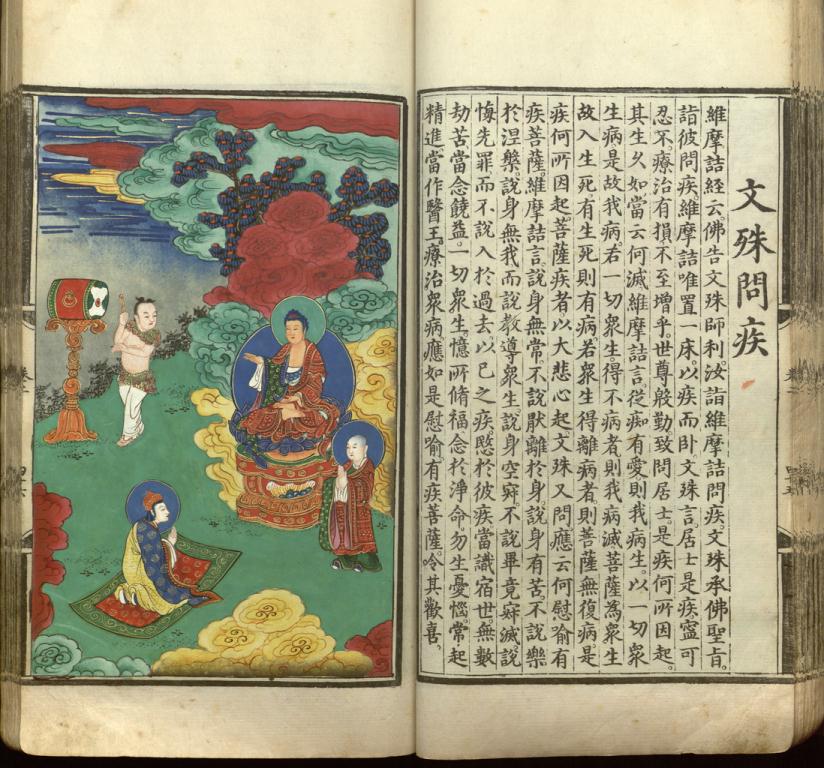 文殊問疾
維摩詰經云。佛告文殊師利。汝詣維摩詰問疾。文殊承佛聖旨。
詣彼問疾。維摩詰唯置一床。以疾而卧。文殊言。居士是疾。寧可
忍不。療治有損。不至增乎。世尊殷勤致問。居士。是疾何所因起。
其生久如。當云何滅。維摩詰言。從痴有愛。則我病生。以一切衆
生病。是故我病。若一切衆生。得不病者。則我病滅。菩薩為衆生
故入生死。有生死則有病。若衆生得離病者。則菩薩無復病。是
疾何所因起。菩薩疾者。以大悲心起。文殊又問。應云何慰喻有
疾菩薩。維摩詰言。說身無常。不說猒離於身。說身有苦。不說樂
於涅槃。說身無我。而說教導衆生。說身空寂。不說畢竟寂滅。說
悔先罪。而不說入於過去。以已之疾。愍於彼疾。當識宿世。無數
劫苦。當念饒益。一切衆生。憶所脩福。念於淨命。勿生憂惱。常起
精進。當作醫王。療治衆病。應如是慰喻。有疾菩薩。令其歡喜。